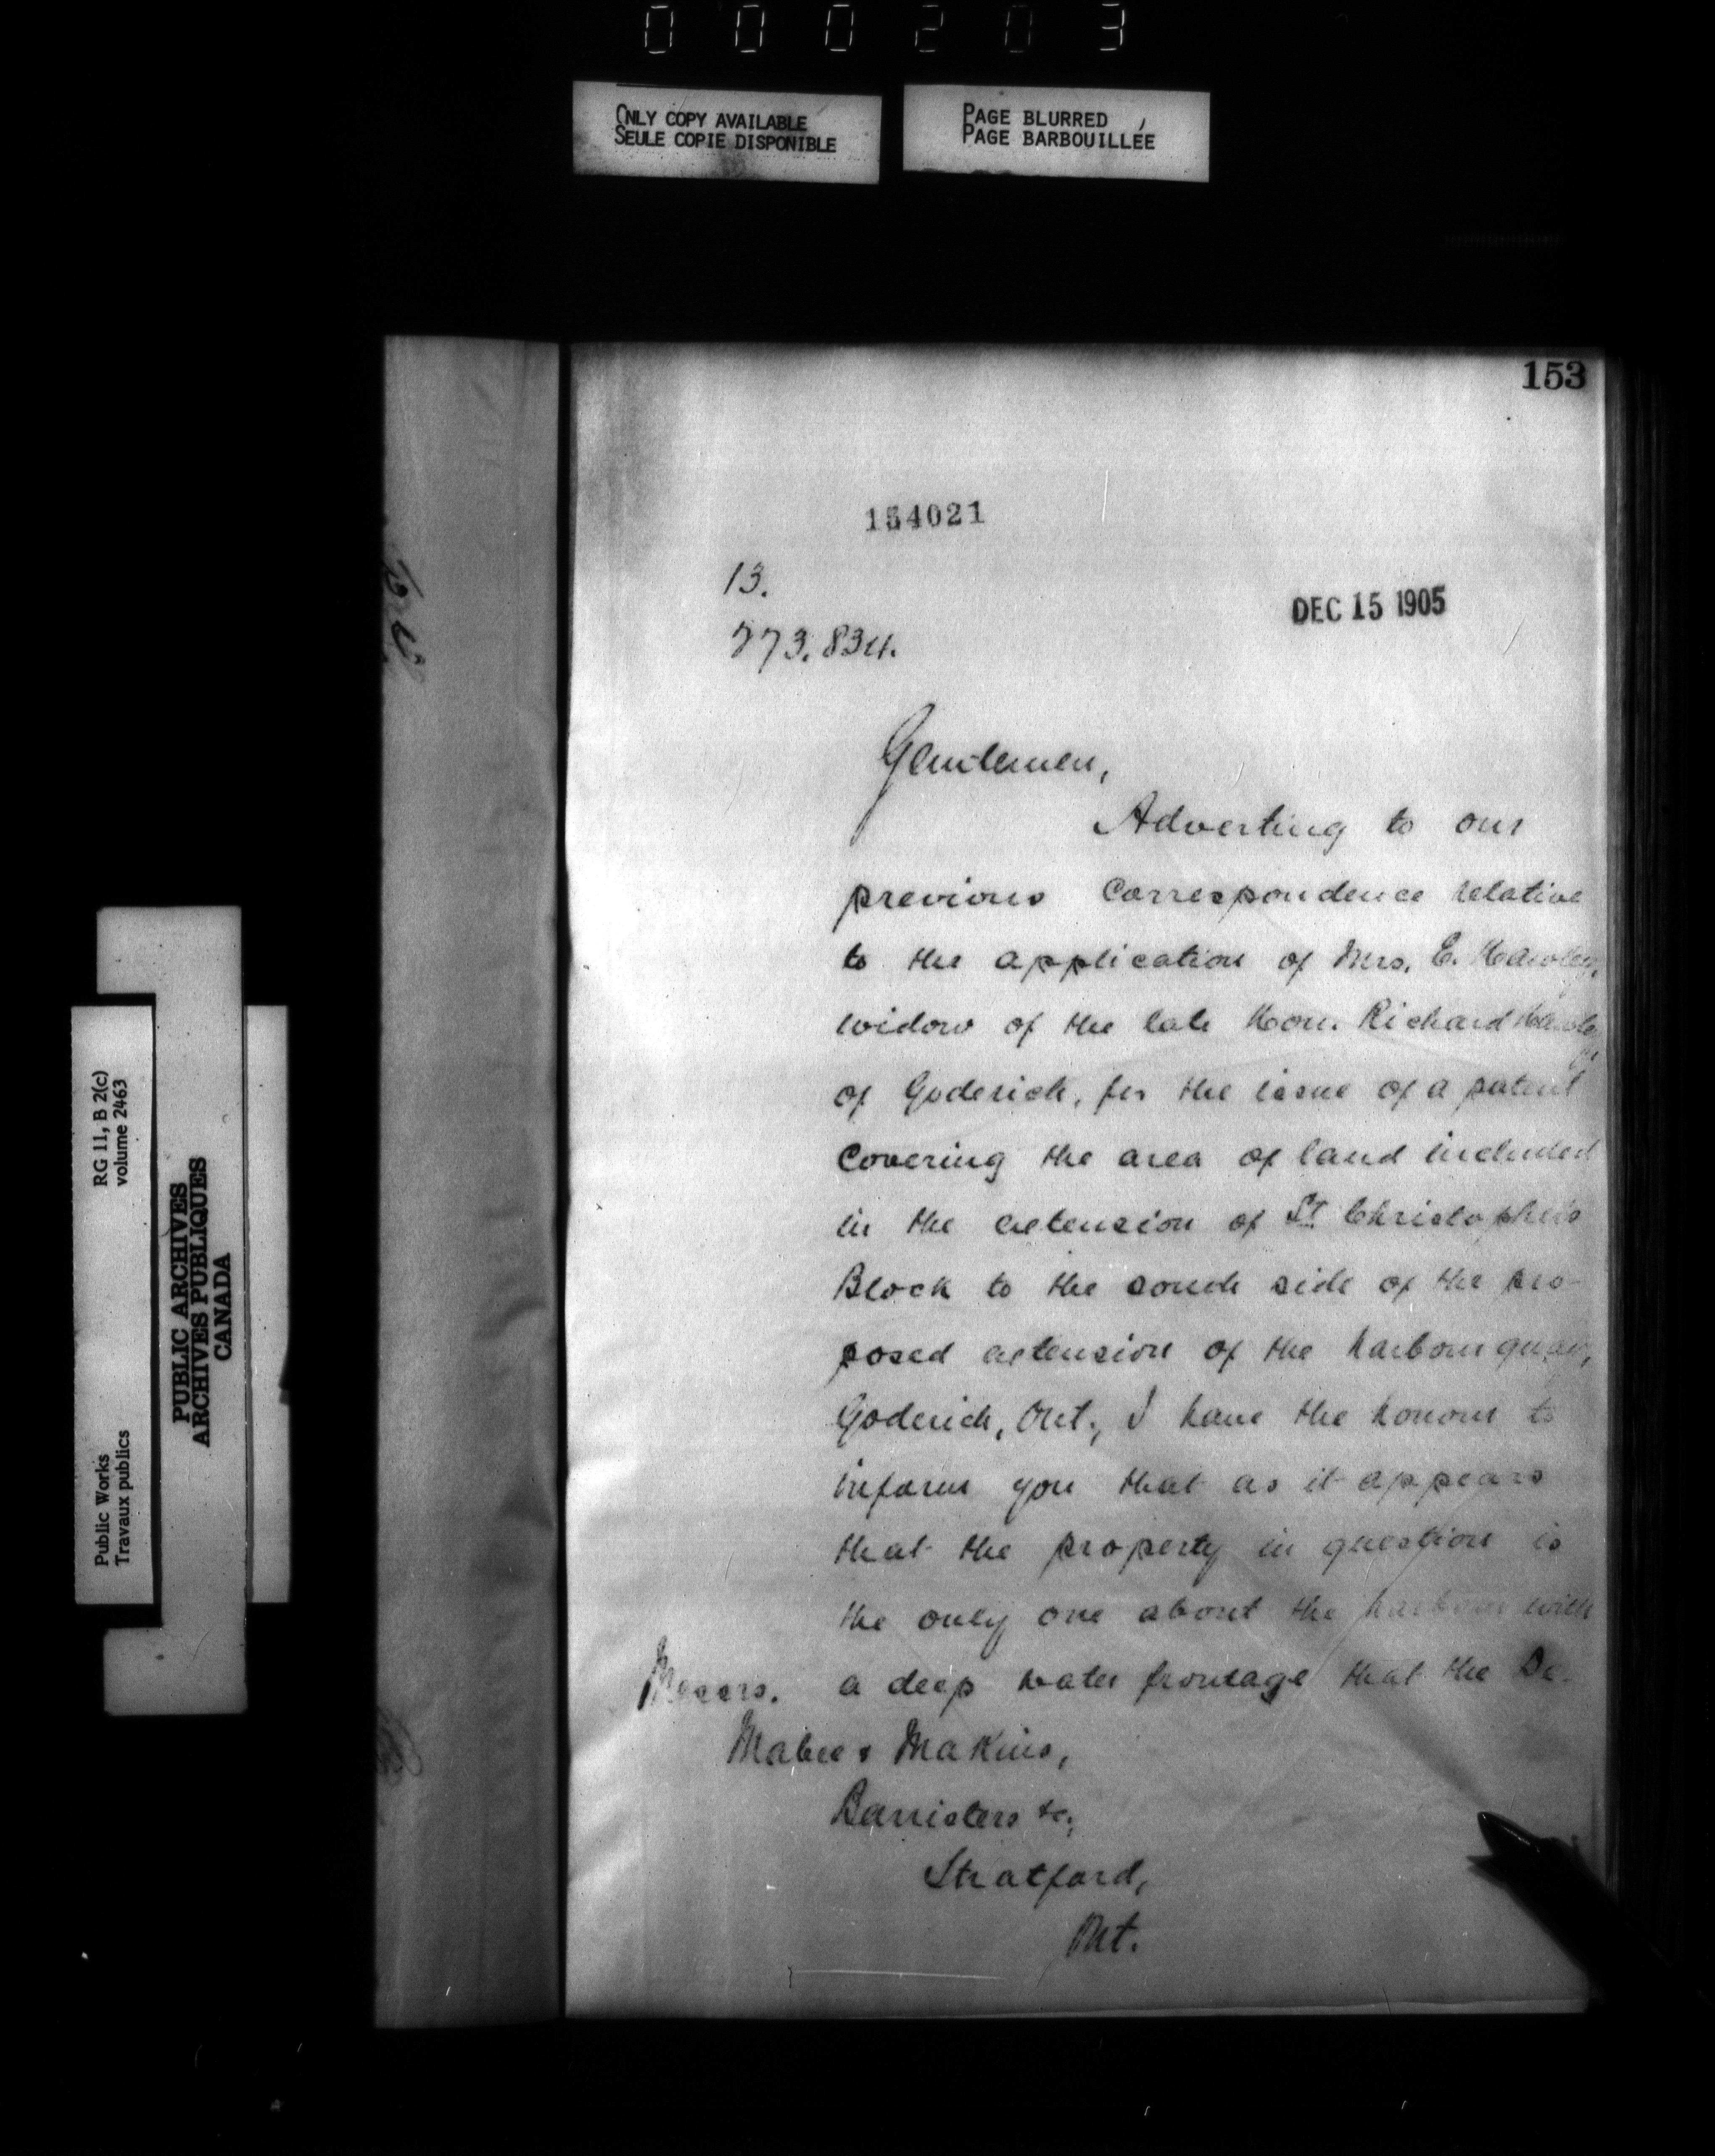 000203
ONLY COPY AVAILABLE
SEULE COPIE DISPONIBLE
PAGE BLURRED
PAGE BARBOUILLÉE
153
154021
13.
DEC 15 1905
773.834.
Gentlemen,
Adverting to our
previous correspondence relative
to the application of Mrs. E. Hawley,
widow of the late Hon. Richard Hawley
of Goderich, for the issue of a patent
covering the area of land included
in the extension of St Christopher's
Block to the south side of the pro-
posed extension of the harbour quay,
Goderich, Ont., I have the honour to
inform you that as it appears
that the property in question is
the only one about the harbour with
a deep water frontage that the De-
Messrs.
Mabee & Makins,
Barristers &c.,
Stratford,
Ont.
RG 11, B 2(c)
volume 2463
Public Works
Travaux publics
PUBLIC ARCHIVES
ARCHIVES PUBLIQUES
CANADA